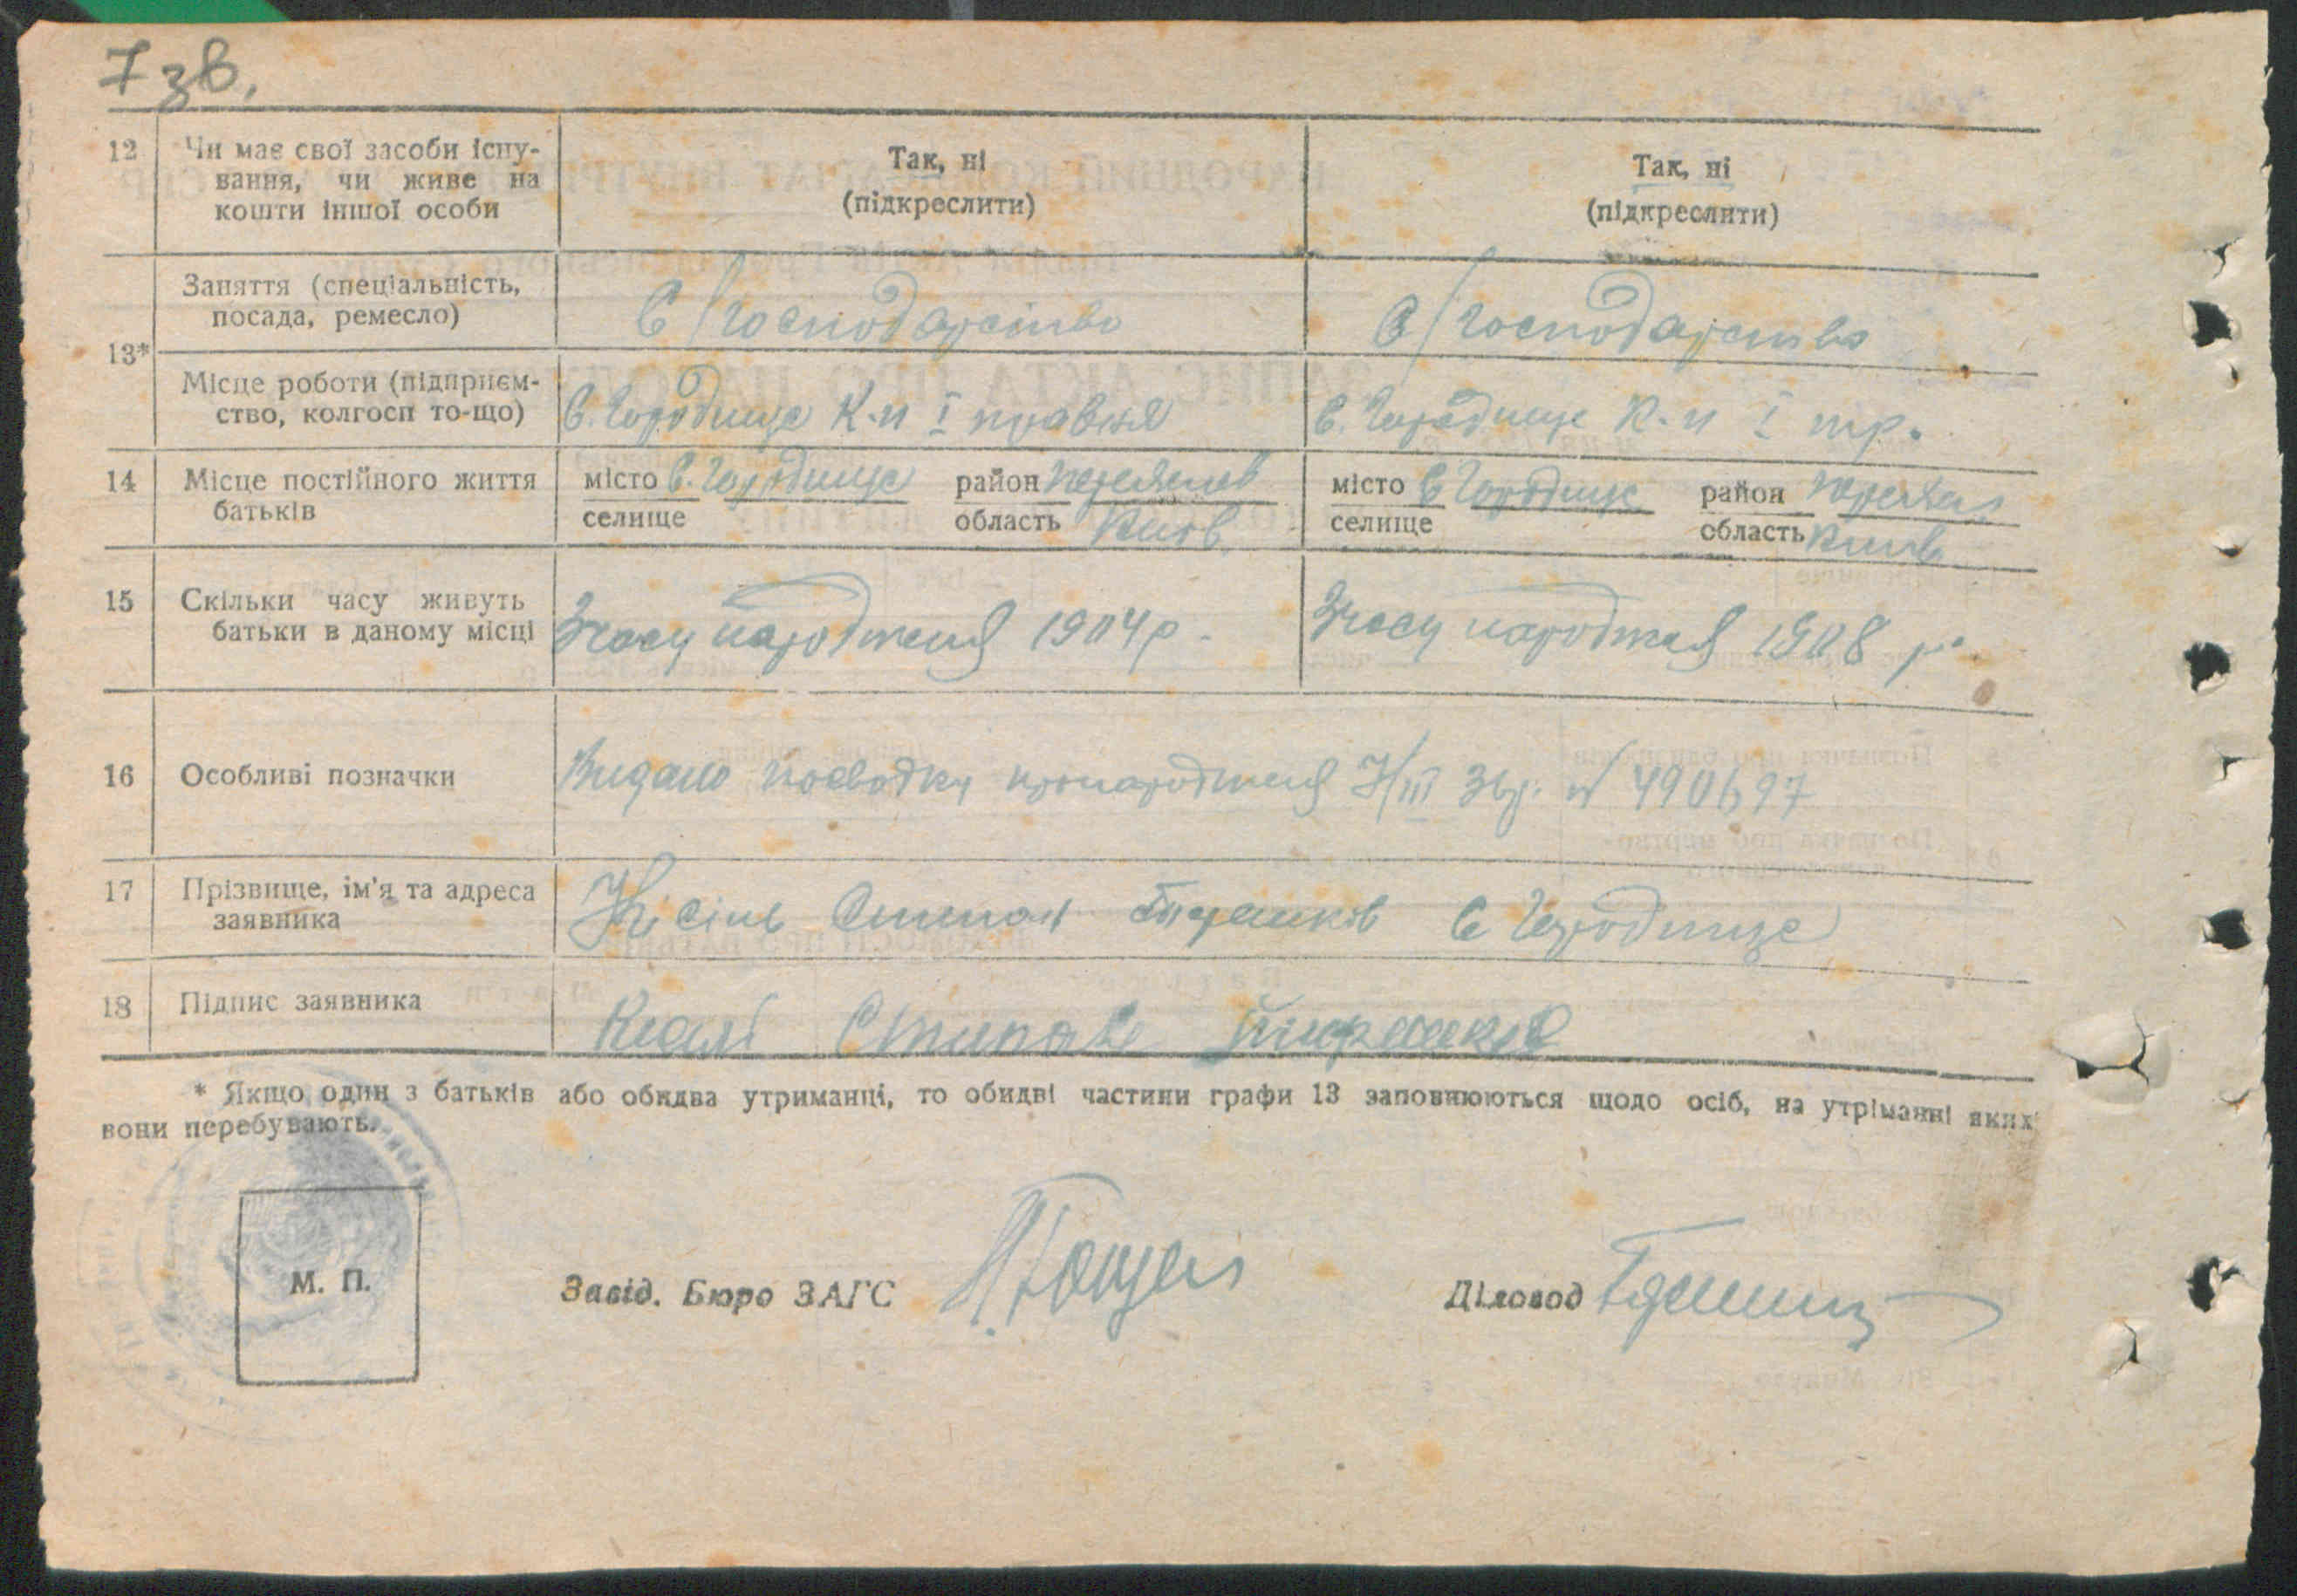 7 зв.
12 Чи має свої засоби існу-
вання, чи живе на
кошти іншої особи
Так, ні
(підкреслити)
Так, ні
(підкреслити)
13*
Заняття (спеціальність,
посада, ремесло)
С/господарство
С/господарство
Місце роботи (підприєм-
ство, колгосп то-що)
с. Городище К-п І травня
с. Городище К-п І тр.
14 Місце постійного життя
батьків
місто с. Городище район Переяслов
селище область Київ.
місто с Городище район Переясл
селище область Київ
15 Скільки часу живуть
батьки в даному місці
Зчасу народженя 1904 р.
Зчасу народженя 1908 р.
16 Особливі позначки
Видано посводку пронародженя Н/ІІІ Звр. № 490697
17 Прізвище, ім'я та адреса
заявника
Кісіль Степан с Городище
18 Підпис заявника
* Якщо один з батьків або обидва утриманці, то обидві частини графи 13 заповнюються щодо осіб, на утріманні яких
вони перебувають.
М. П.
Завід. Бюро ЗАГС
Діловод